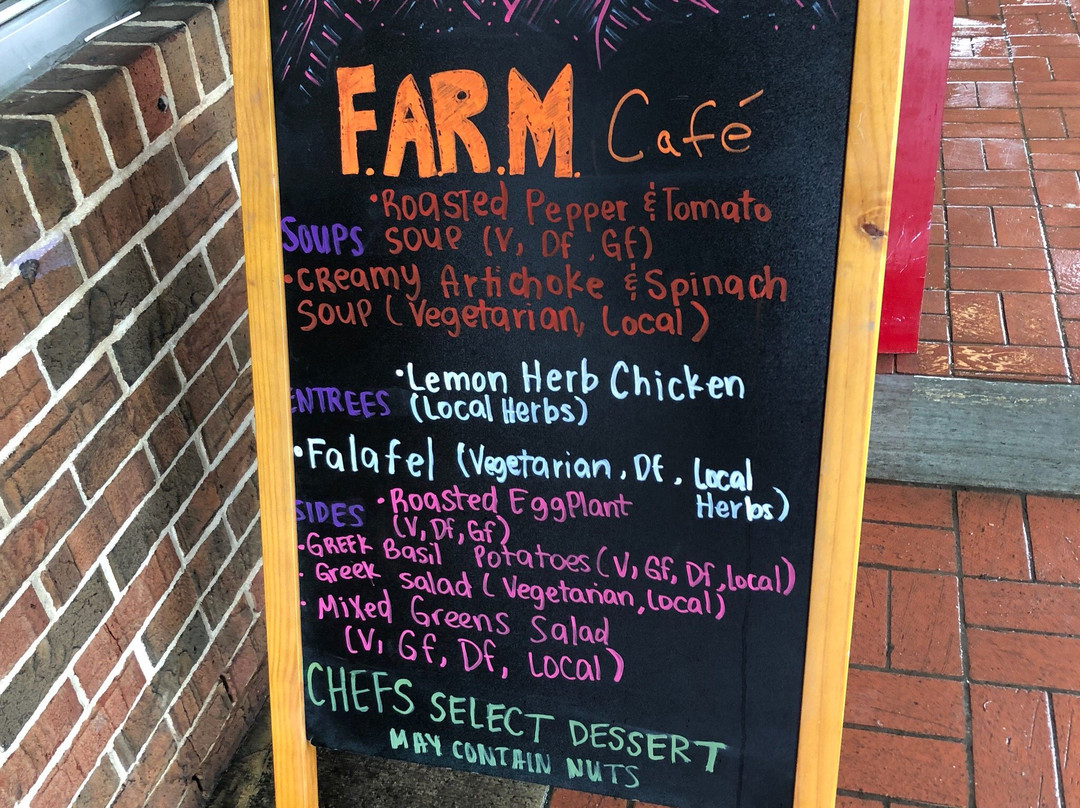 F.A.R.M. Café
•Roasted Pepper & Tomato
SOUPS SOUP (V, Df, Gf)
•CReamy Artichoke & Spinach
SOUP (Vegetarian, Local)
•Lemon Herb Chicken
ENTREES (Local Herbs)
•Falafel (Vegetarian, Df, Local
Herbs)
SIDES •Roasted EggPlant
(V, Df, Gf)
•GREEK Basil Potatoes (V, Gf, Df, local)
•Greek salad (Vegetarian, Local)
•Mixed Greens Salad
(V, Gf, Df, Local)
CHEFS SELECT DESSERT
MAY CONTAIN NUTS